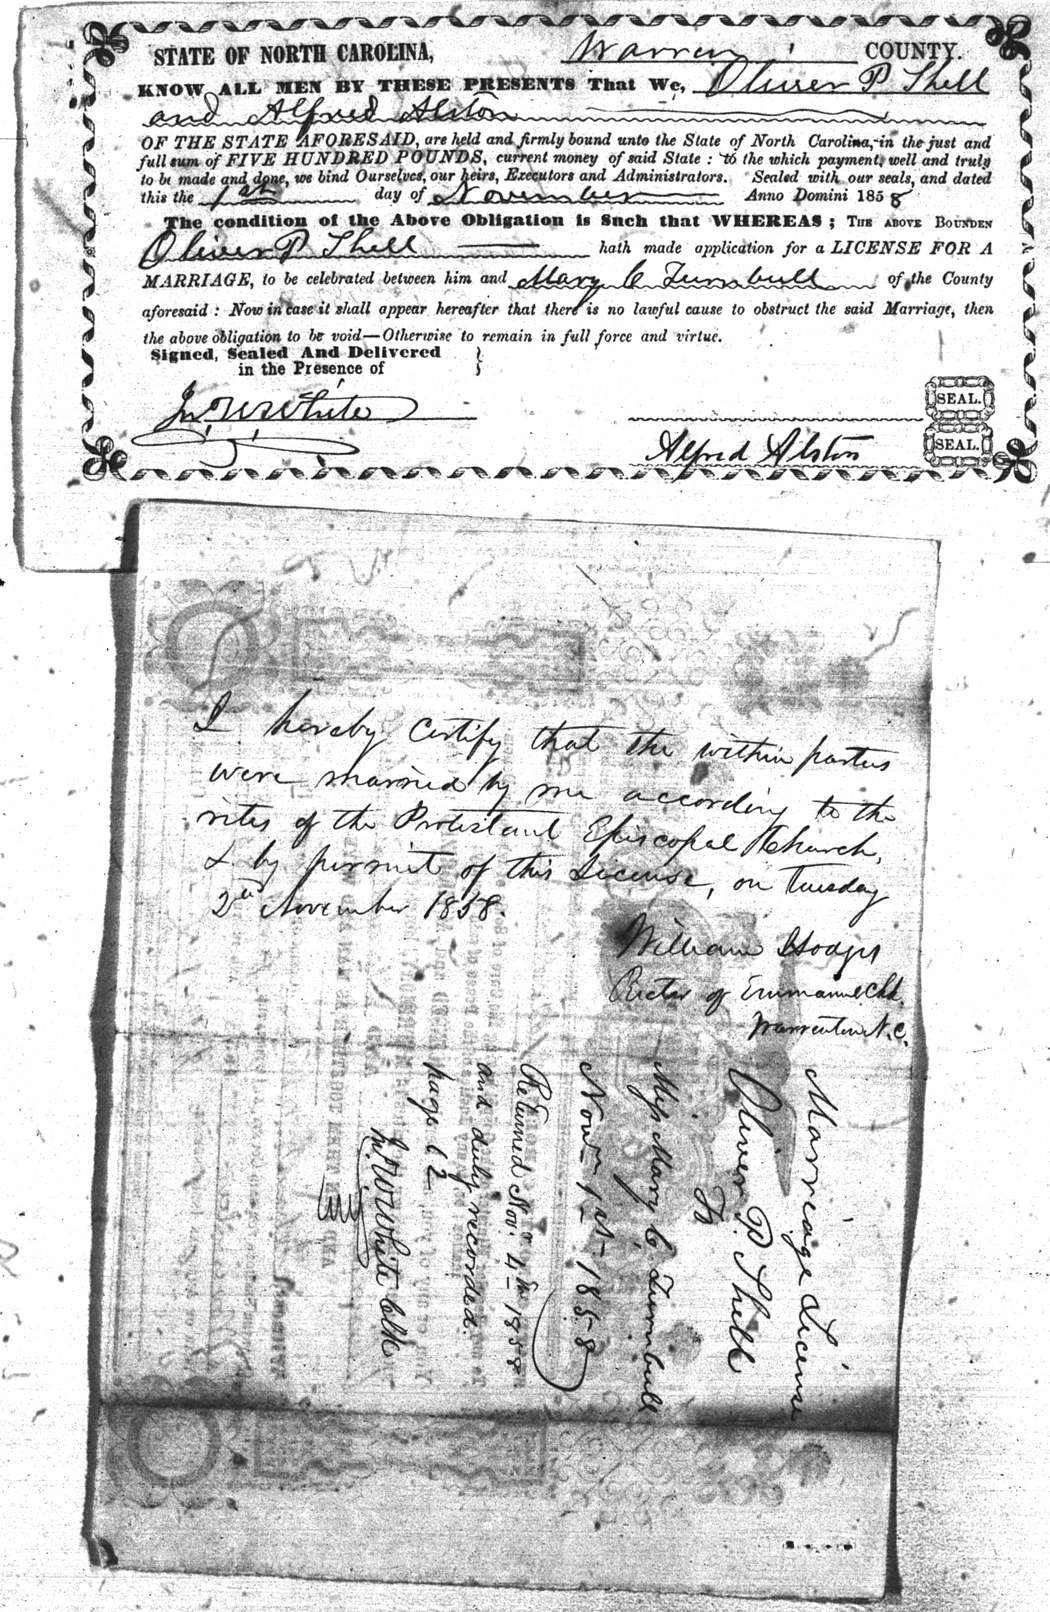 STATE OF NORTH CAROLINA, Warren COUNTY.
KNOW ALL MEN BY THESE PRESENTS That We, Oliver P. Shell
and Alfred Alston
OF THE STATE AFORESAID, are held and firmly bound unto the State of North Carolina, in the just and
full sum of FIVE HUNDRED POUNDS, current money of said State: to the which payment, well and truly
to be made and done, we bind Ourselves, our heirs, Executors and Administrators. Sealed with our seals, and dated
this the 1st day of November Anno Domini 1858
The condition of the Above Obligation is Such that WHEREAS; THE ABOVE BOUNDEN
Oliver P. Shell hath made application for a LICENSE FOR A
MARRIAGE, to be celebrated between him and Mary C Turnbull of the County
aforesaid: Now in case it shall appear hereafter that there is no lawful cause to obstruct the said Marriage, then
the above obligation to be void—Otherwise to remain in full force and virtue.
Signed, Sealed And Delivered
in the Presence of
Jno. W. White
SEAL.
Alfred Alston SEAL.
I hereby certify that the within parties
were married by me according to the
rites of the Protestant Episcopal Church,
& by permit of this License, on Tuesday
2nd November 1858.
William Hodges
Rector of Emmanuel Ch.
Warrenton N.C.
Marriage License
Oliver P. Shell
To
Miss Mary C Turnbull
Novr 1st 1858
Returned Nov. 4th 1858
and duly recorded.
page 62
Jno. W. White Clk